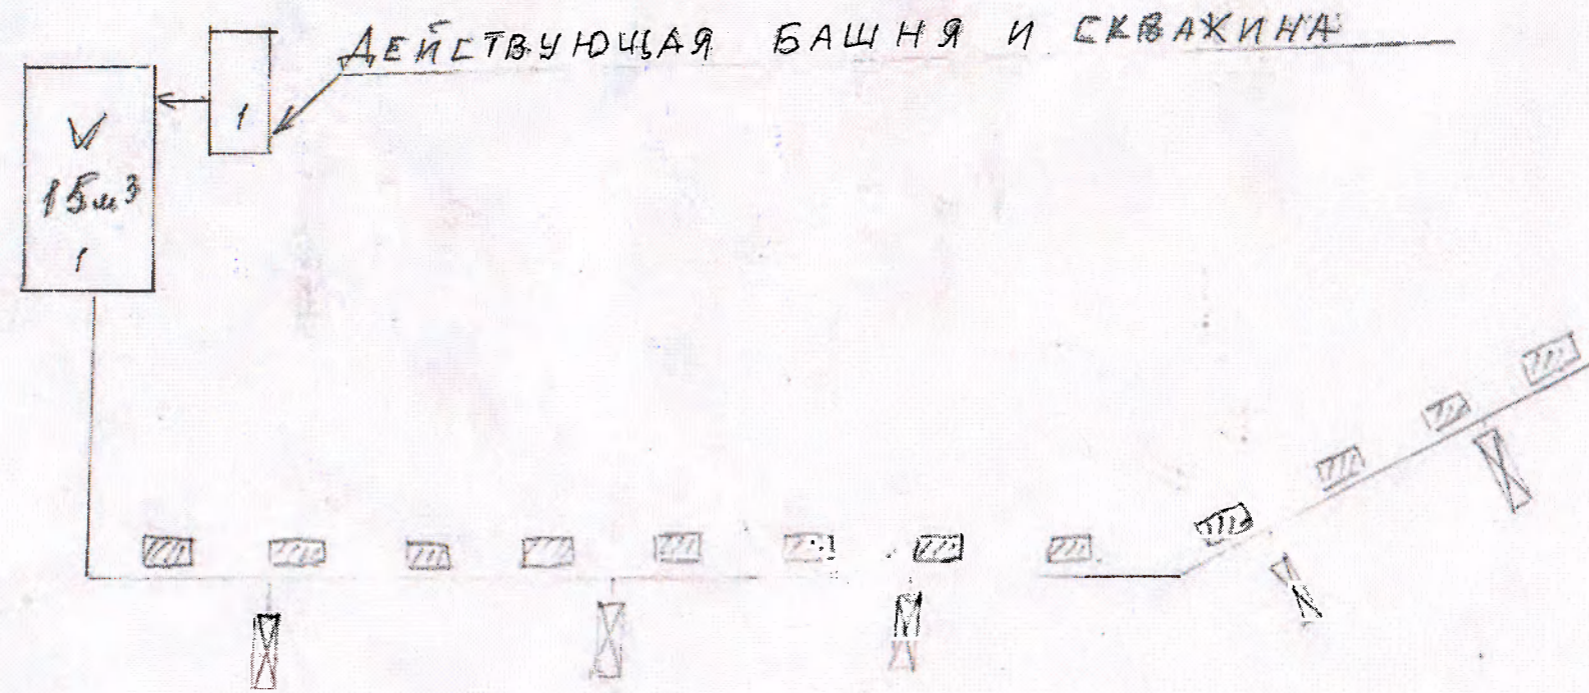 ДЕЙСТВУЮЩАЯ БАШНЯ И СКВАЖИНА
1
V
15м³
1